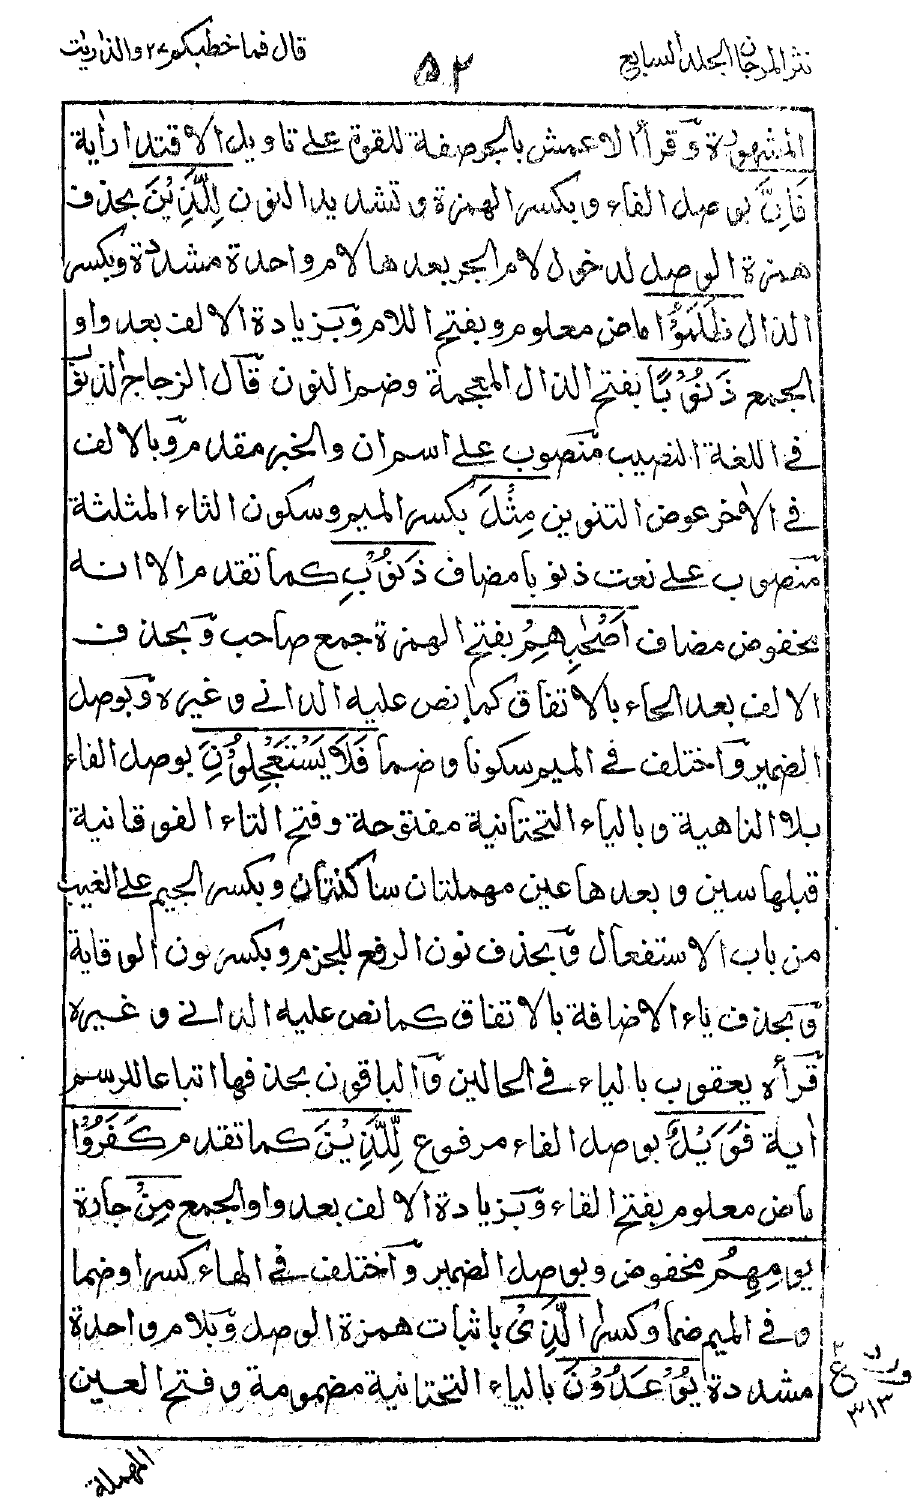 نثر المرجان الجلد السابع
٥٢
قال فما خطبكم ٢٧ والذاريت
المشهورة وقرأ الاعمش بالجر صفة للقوة على تاويل الاقتدار اية
فَاِنَّ بوصل الفاء وبكسر الهمزة وتشديد النون لِلَّذِيْنَ بحذف
همزة الوصل لدخول لام الجر بعدها لام واحدة مشددة وبكسر
الذال ظَلَمُوْا ماض معلوم وبفتح اللام وبزيادة الالف بعد واو
الجمع ذَنُوْبًا بفتح الذال المعجمة وضم النون قال الزجاج الذنوب
فى اللغة النصيب منصوب على اسم ان والخبر مقدم وبالالف
فى الاٰخر عوض التنوين مِثْلَ بكسر الميم وسكون الثاء المثلثة
منصوب على نعت ذنوبا مضاف ذَنُوْبِ كما تقدم الا انه
مخفوض مضاف اَصْحٰبِهِمْ بفتح الهمزة جمع صاحب وبحذف
الالف بعد الحاء بالاتفاق كما نص عليه الدانى وغيره وبوصل
الضمير واختلف فى الميم سكونا وضما فَلَا يَسْتَعْجِلُوْنِ بوصل الفاء
بلا الناهية وبالياء التحتانية مفتوحة وفتح التاء الفوقانية
قبلها سين وبعدها عين مهملتان ساكنتان وبكسر الجيم على الغيب
من باب الاستفعال وبحذف نون الرفع للجزم وبكسر نون الوقاية
وبحذف ياء الاضافة بالاتفاق كما نص عليه الدانى وغيره
قرأه يعقوب بالياء فى الحالين والباقون بحذفها اتباعا للرسم
اٰية فَوَيْلٌ بوصل الفاء مرفوع لِّلَّذِيْنَ كما تقدم كَفَرُوْا
ماض معلوم بفتح الفاء وبزيادة الالف بعد واو الجمع مِنْ جارة
يومِهِمُ مخفوض وبوصل الضمير واختلف فى الهاء كسرا وضما
وفى الميم ضما وكسرا الَّذِىْ باثبات همزة الوصل وبلام واحدة
مشددة يُوْعَدُوْنَ بالياء التحتانية مضمومة وفتح العين
المهملة